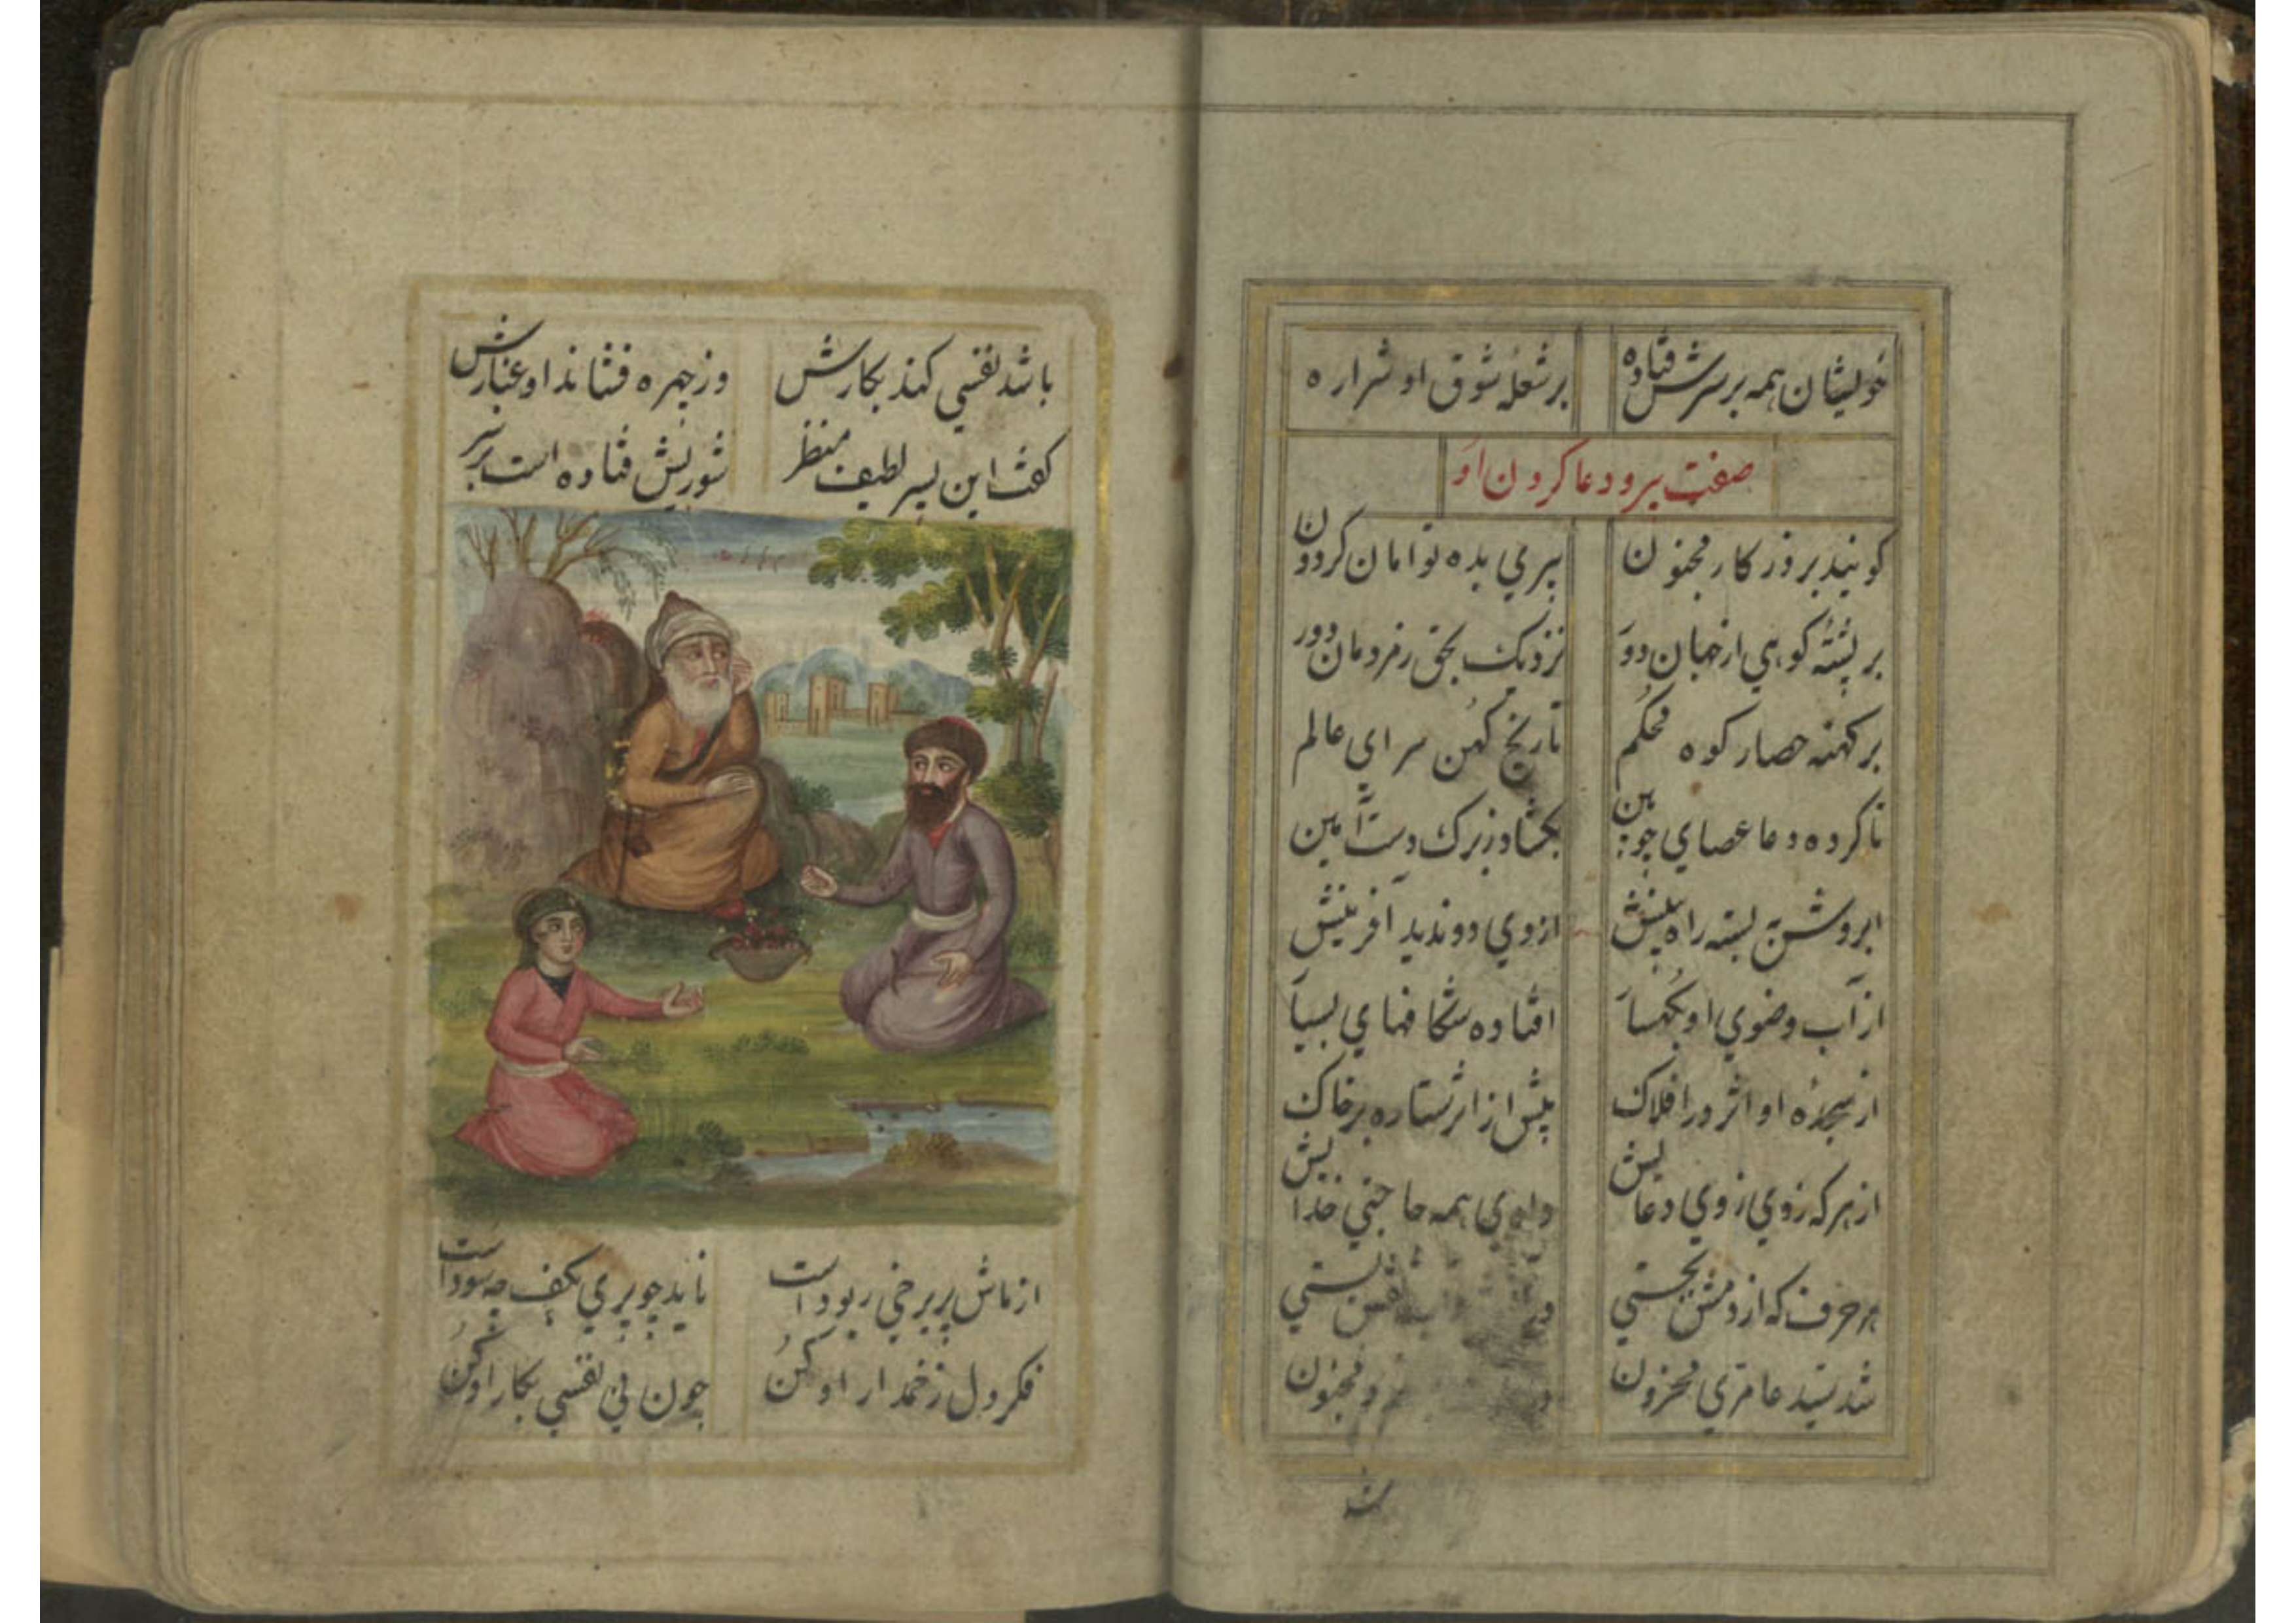 خویشان همه بر سرش فتاده بر شعله شوق او شراره
صفت پیر و دعا کردن او
کویند بروزکار مجنون پیری بده توامان کردون
بر پشته کوهی از جهان دور نزدیک بحق ز مردمان دور
بر کهنه حصار کوه محکم تاریخ کهن سرای عالم
ناکرده دعا عصای چوبین بکشاد ز برک دست آمین
ابروش بسته راه بینش از وی دو ندید آفرینش
از آب وضوی او بکهسار افتاده شکافهای بسیار
از سجده او اثر در افلاک بیش از اثر ستاره بر خاک
از هر که زدی ز وی دعا بیش وادی همه حاجتی خدا بیش
هر حرف که از دمش بجستی
شد سید عامری محزون مجنون
باشد نفسی کند بکارش وز چهره فشاند او غبارش
کفت این پسر لطیف منظر شوریش فتاده است بر سر
از ماش پریرخی ربوداست ناید چو پری بکف چه سوداست
فکر دل زخمدار او کن چون نی نفسی بکار او کن